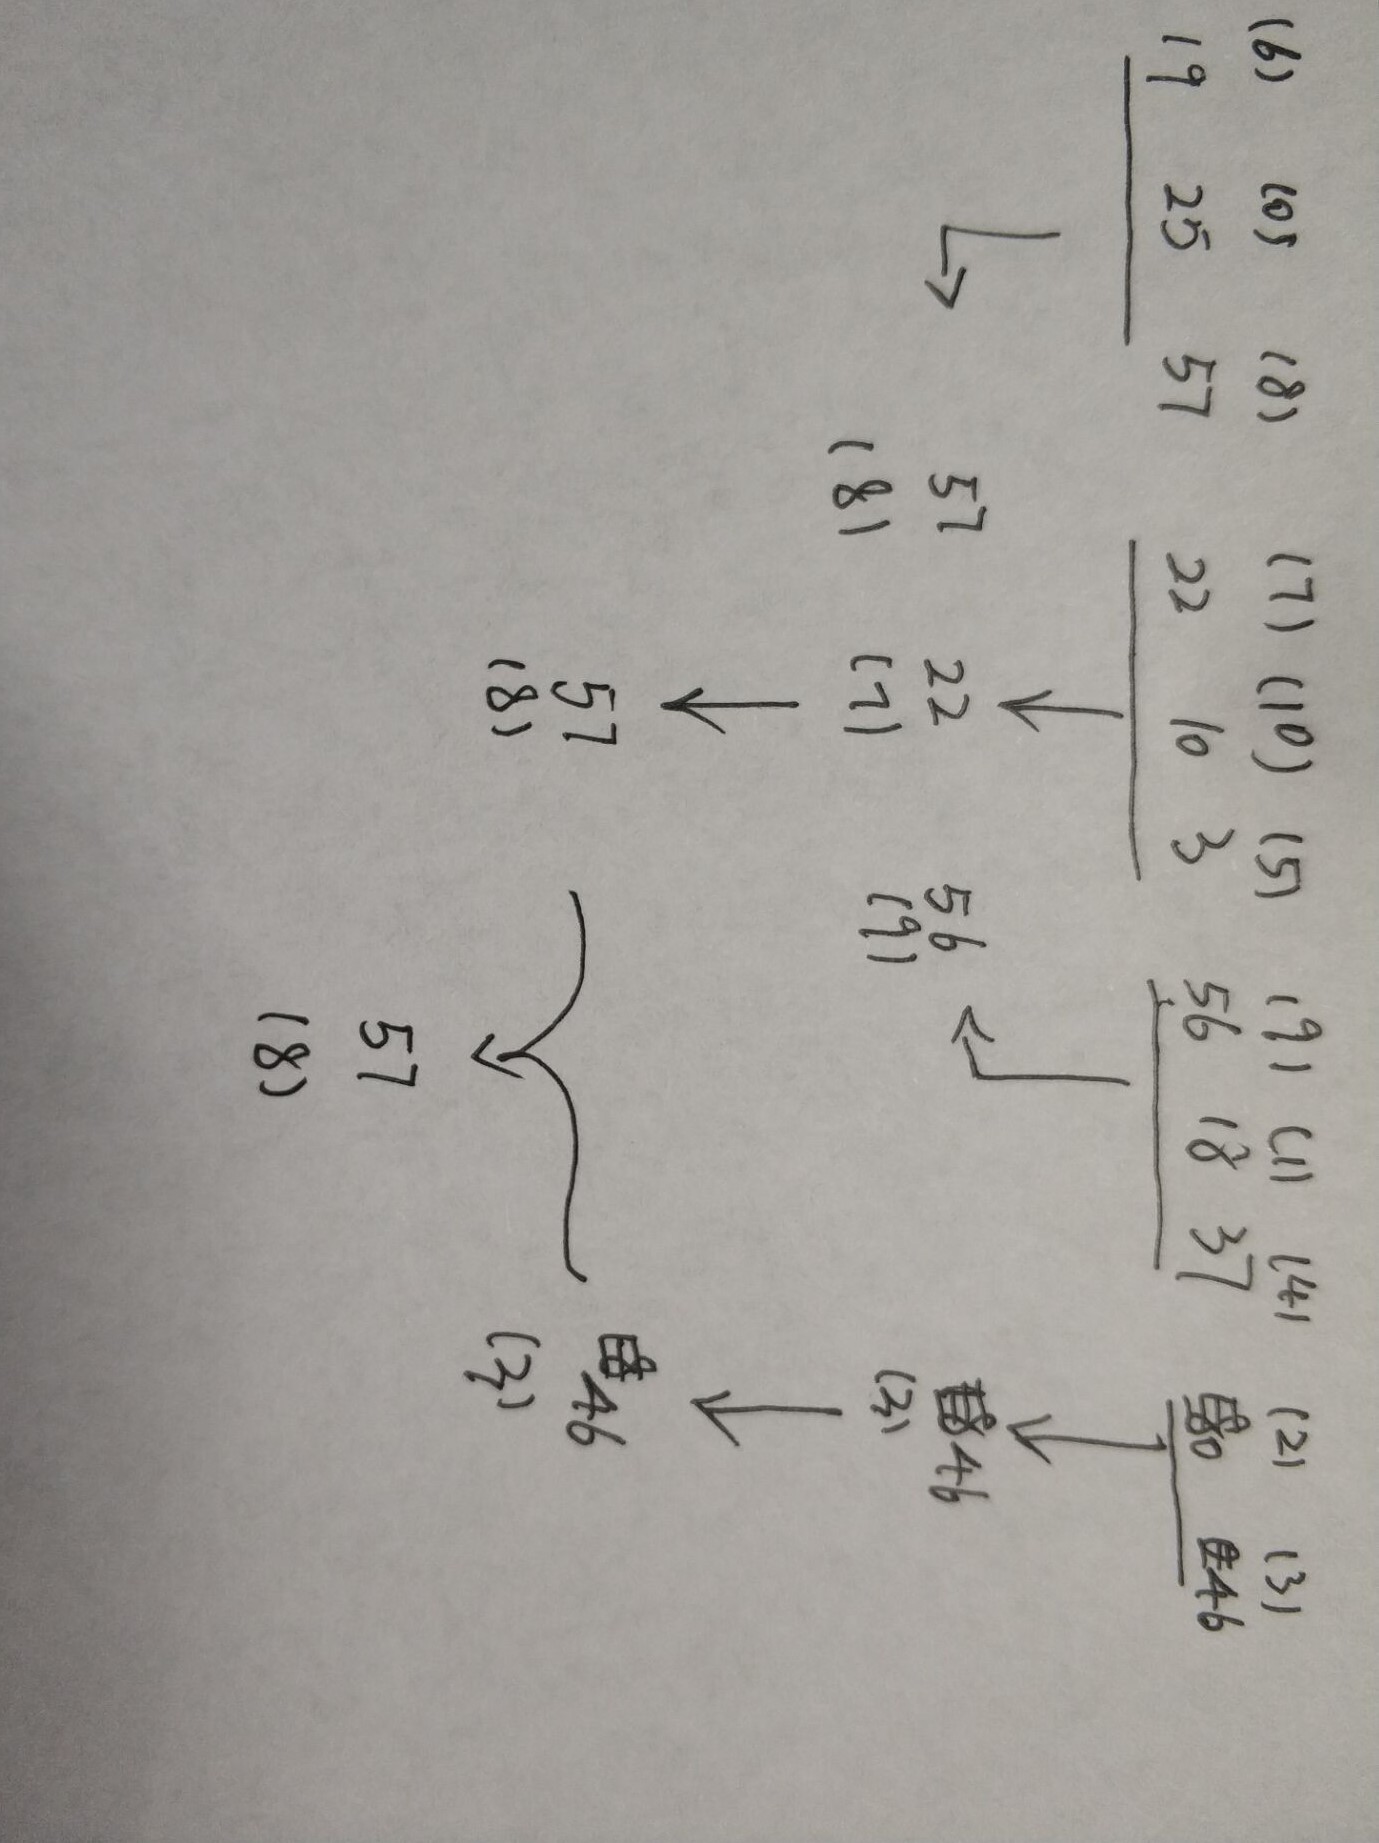 (6) (0) (8) (7) (10) (5) (9) (1) (4) (2) (3)
19 25 57 22 10 3 56 18 37 0 46
57 22 56 46
(8) (7) (9) (3)
57 46
(8) (3)
57
(8)